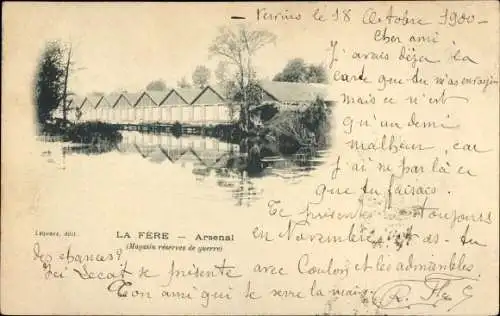 Vervins le 18 Octobre 1900
Cher ami
J'avais déjà la
carte que tu m'as envoyée
mais ce n'est
qu'un demi
malheur, car
j'ai ne par là ce
que tu faisais.
Te présentes-tu toujours
en Novembre, as-tu
des chances?
Ici Lecat se présente avec Coulon et les admirables.
Ton ami qui te serre la main
LA FÈRE – Arsenal
(Magasin réserves de guerre)
édit.